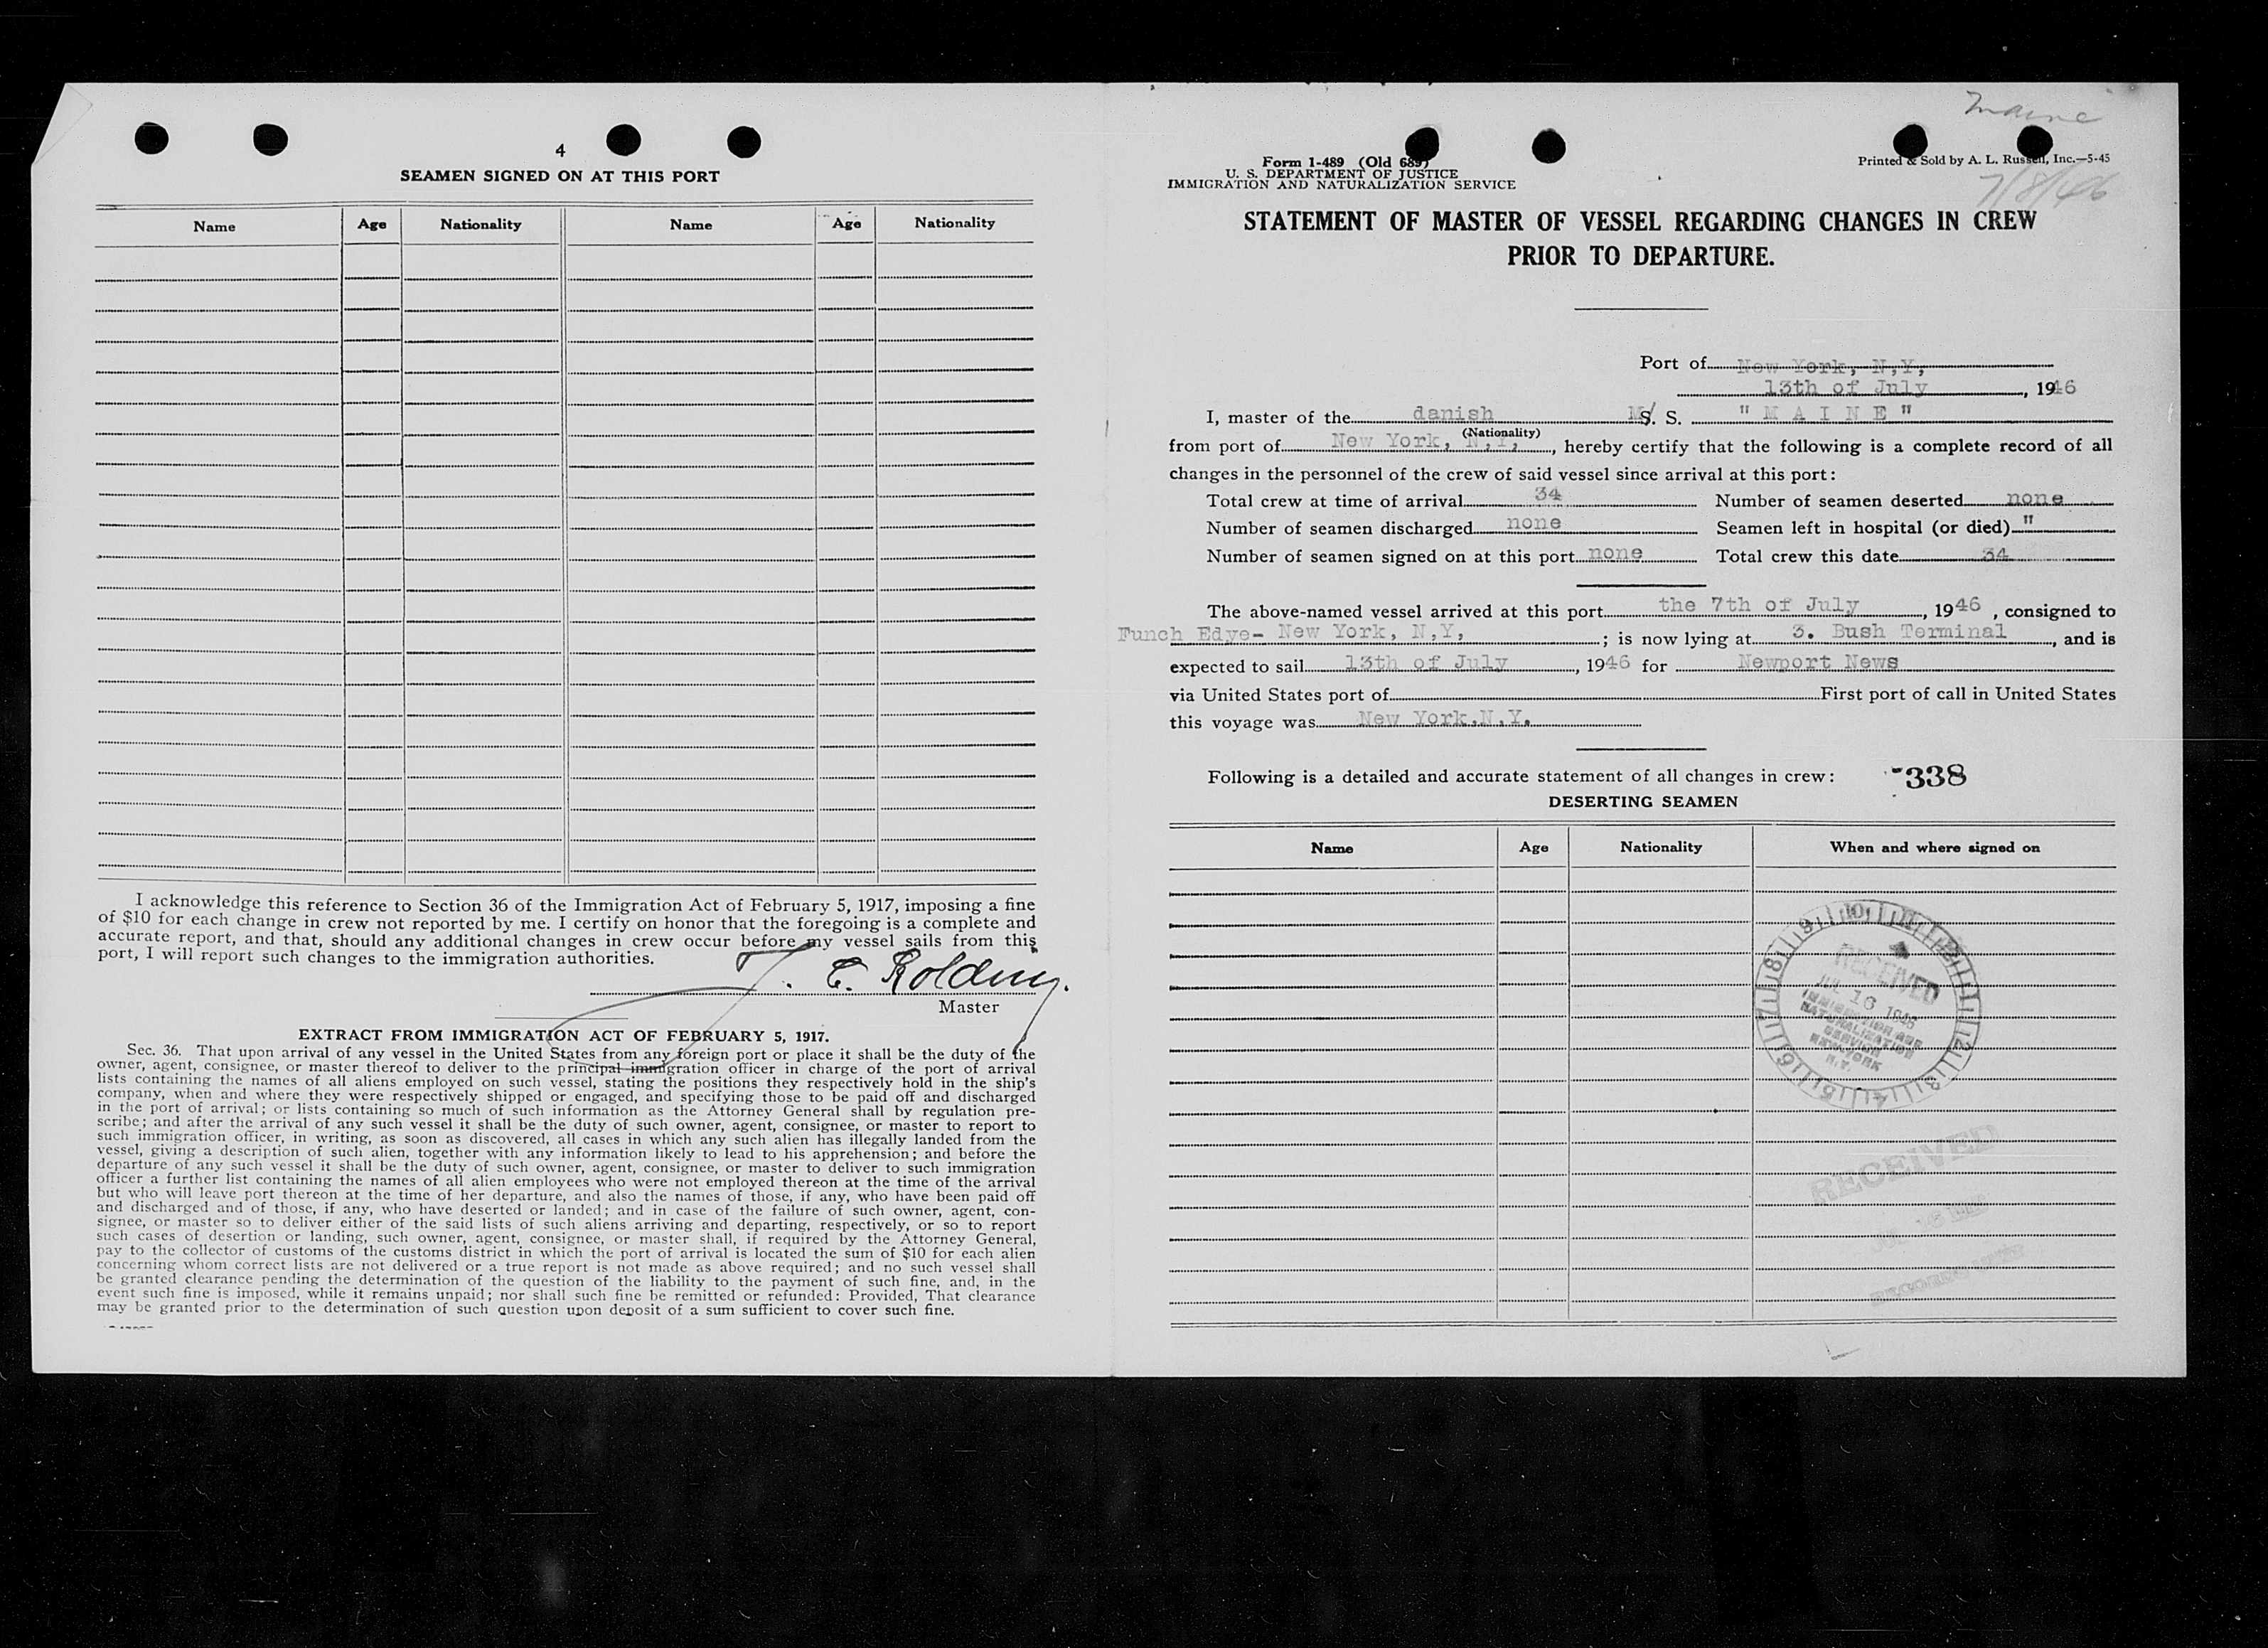 4
SEAMEN SIGNED ON AT THIS PORT
Name Age Nationality Name Age Nationality
I acknowledge this reference to Section 36 of the Immigration Act of February 5, 1917, imposing a fine
of $10 for each change in crew not reported by me. I certify on honor that the foregoing is a complete and
accurate report, and that, should any additional changes in crew occur before my vessel sails from this
port, I will report such changes to the immigration authorities.
J. C. Rolding.
Master
EXTRACT FROM IMMIGRATION ACT OF FEBRUARY 5, 1917.
Sec. 36. That upon arrival of any vessel in the United States from any foreign port or place it shall be the duty of the
owner, agent, consignee, or master thereof to deliver to the principal immigration officer in charge of the port of arrival
lists containing the names of all aliens employed on such vessel, stating the positions they respectively hold in the ship's
company, when and where they were respectively shipped or engaged, and specifying those to be paid off and discharged
in the port of arrival; or lists containing so much of such information as the Attorney General shall by regulation pre-
scribe; and after the arrival of any such vessel it shall be the duty of such owner, agent, consignee, or master to report to
such immigration officer, in writing, as soon as discovered, all cases in which any such alien has illegally landed from the
vessel, giving a description of such alien, together with any information likely to lead to his apprehension; and before the
departure of any such vessel it shall be the duty of such owner, agent, consignee, or master to deliver to such immigration
officer a further list containing the names of all alien employees who were not employed thereon at the time of the arrival
but who will leave port thereon at the time of her departure, and also the names of those, if any, who have been paid off
and discharged and of those, if any, who have deserted or landed; and in case of the failure of such owner, agent, con-
signee, or master so to deliver either of the said lists of such aliens arriving and departing, respectively, or so to report
such cases of desertion or landing, such owner, agent, consignee, or master shall, if required by the Attorney General,
pay to the collector of customs of the customs district in which the port of arrival is located the sum of $10 for each alien
concerning whom correct lists are not delivered or a true report is not made as above required; and no such vessel shall
be granted clearance pending the determination of the question of the liability to the payment of such fine, and, in the
event such fine is imposed, while it remains unpaid; nor shall such fine be remitted or refunded: Provided, That clearance
may be granted prior to the determination of such question upon deposit of a sum sufficient to cover such fine.
Maine
Form 1-489 (Old 689)
U. S. DEPARTMENT OF JUSTICE
IMMIGRATION AND NATURALIZATION SERVICE
Printed & Sold by A. L. Russell, Inc.—5-45
7/8/46
STATEMENT OF MASTER OF VESSEL REGARDING CHANGES IN CREW
PRIOR TO DEPARTURE.
Port of New York, N,Y,
13th of July, 1946
I, master of the danish M/S. S. " M A I N E "
(Nationality)
from port of New York, N,Y,, hereby certify that the following is a complete record of all
changes in the personnel of the crew of said vessel since arrival at this port:
Total crew at time of arrival 34 Number of seamen deserted none
Number of seamen discharged none Seamen left in hospital (or died) "
Number of seamen signed on at this port none Total crew this date 34
The above-named vessel arrived at this port the 7th of July, 1946, consigned to
Funch Edye- New York, N,Y,; is now lying at 3. Bush Terminal, and is
expected to sail 13th of July, 1946 for Newport News
via United States port of First port of call in United States
this voyage was New York,N,Y.
Following is a detailed and accurate statement of all changes in crew: 338
DESERTING SEAMEN
Name Age Nationality When and where signed on
10 11 12 1 2 3 4 5 6 7 8 9
RECEIVED
JUL 16 1946
IMMIGRATION AND
NATURALIZATION
SERVICE
NEW YORK
N.Y.
RECEIVED
JUL 16